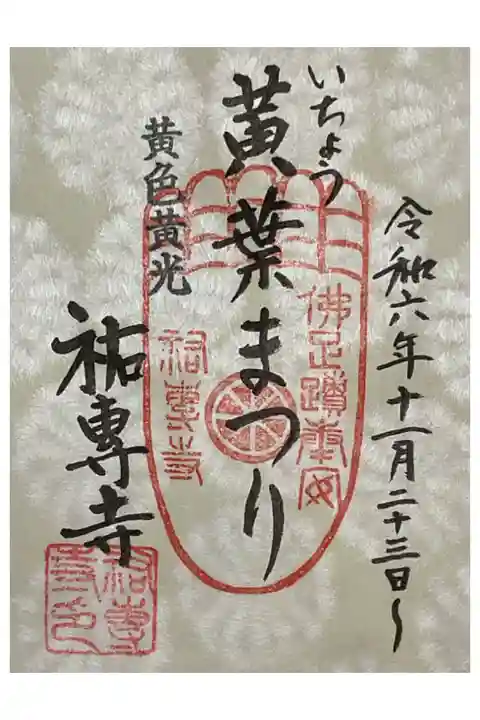 令和六年十一月二十三日〜
いちょう
黄葉まつり
黄色黄光
祐專寺
佛足蹟奉安
祐專寺
祐專寺印